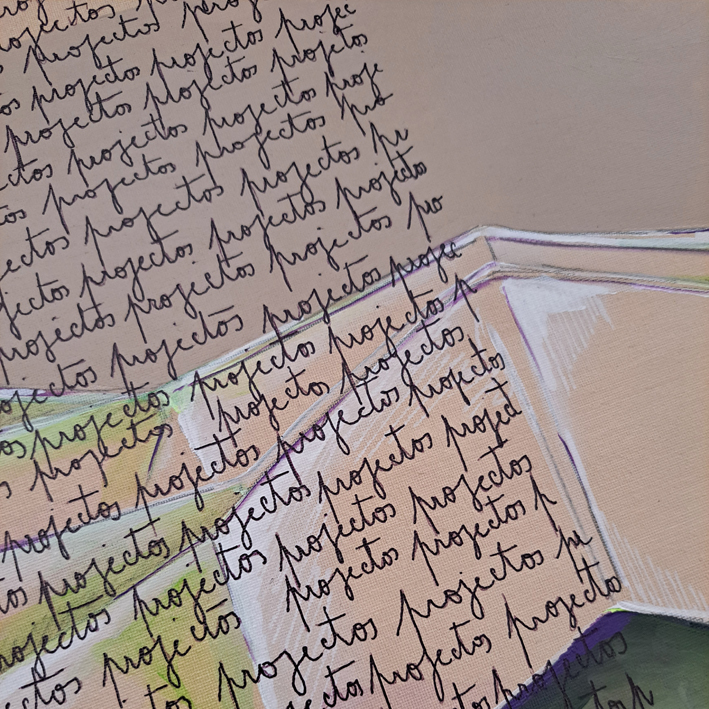 projectos
projectos projectos projec
projectos projectos projetos
projectos projectos proje
projectos projectos pro
projectos projectos
projectos projectos pr
projectos projectos projectos
projectos projectos pro
projectos projectos projectos
projectos projectos projec
projectos projectos p
projectos projectos projectos
projectos projectos projectos
projectos projectos projectos
projectos projectos projectos
projectos projectos projectos p
projectos projectos pr
projectos projectos projectos
projectos projectos